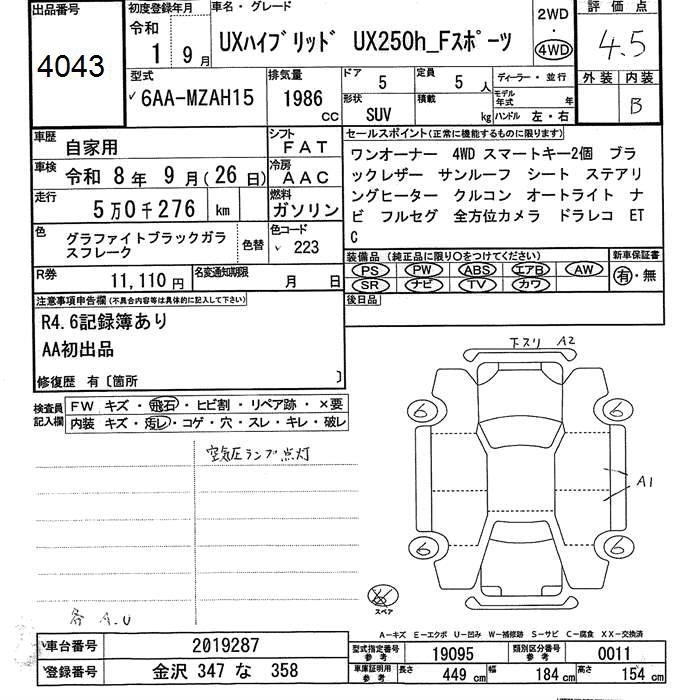 出品番号
4043
初度登録年月
令和
1 9月
車名・グレード
UXハイブリッド UX250h_Fスポーツ
2WD
4WD
評価点
4.5
外装 内装
B
型式
6AA-MZAH15
排気量
1986
cc
ドア
5
定員
5人
形状
SUV
積載
kg
ディーラー・並行
モデル年式 年
ハンドル 左・右
車歴 自家用
シフト
FAT
車検 令和 8年 9月(26日)
冷房
AAC
走行 5万0千276 km
燃料
ガソリン
色 グラファイトブラックガラスフレーク
色替
色コード
223
R券 11,110円
名変通知期限 月 日
セールスポイント(正常に機能するものに限ります)
ワンオーナー 4WD スマートキー2個 ブラ
ックレザー サンルーフ シート ステアリ
ングヒーター クルコン オートライト ナ
ビ フルセグ 全方位カメラ ドラレコ ET
C
装備品 (純正品に限り○をつけてください)
新車保証書
PS PW ABS エアB AW
SR ナビ TV カワ
有・無
後日品
注意事項申告欄(不具合内容等は具体的に記入して下さい)
R4.6記録簿あり
AA初出品
修復歴 有〔箇所 〕
検査員記入欄
FW キズ・飛石・ヒビ割・リペア跡・×要
内装 キズ・汚レ・コゲ・穴・スレ・キレ・破レ
空気圧ランプ点灯
下スリ A2
6
6
A1
6
6
スペア
各 A.U
A-キズ E-エクボ U-凹み W-補修跡 S-サビ C-腐食 XX-交換済
車台番号 2019287
登録番号 金沢 347 な 358
型式指定番号 参考 19095
類別区分番号 参考 0011
車庫証明用 参考 長さ 449 cm 幅 184 cm 高さ 154 cm